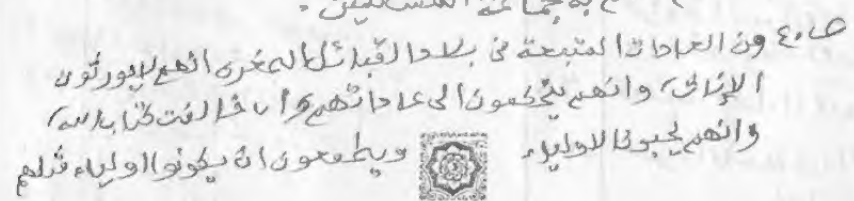 به جماعة المسلمين.
ص ٤٠ ومن العادات المتبعة في بلاد القبائل المغربي انهم لا يورثون
الإناث، وانهم يحتكمون إلى عاداتهم وان خالفت كتاب الله،
وانهم يحبون الاولياء ويطمعون ان يكونوا اولياء مثلهم